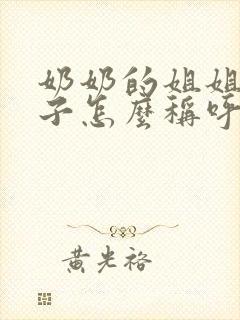 奶奶的姐姐
子怎麼稱呼
黄光裕